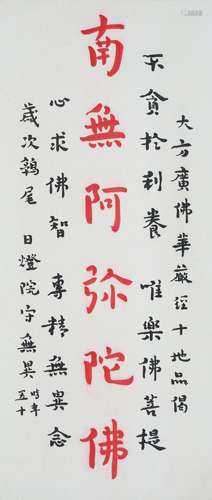 大方廣佛華嚴經十地品偈
不貪於利養 唯樂佛菩提
南無阿彌陀佛
心求佛智 專精無異念
歲次鶉尾 日燈院守無異 時年五十